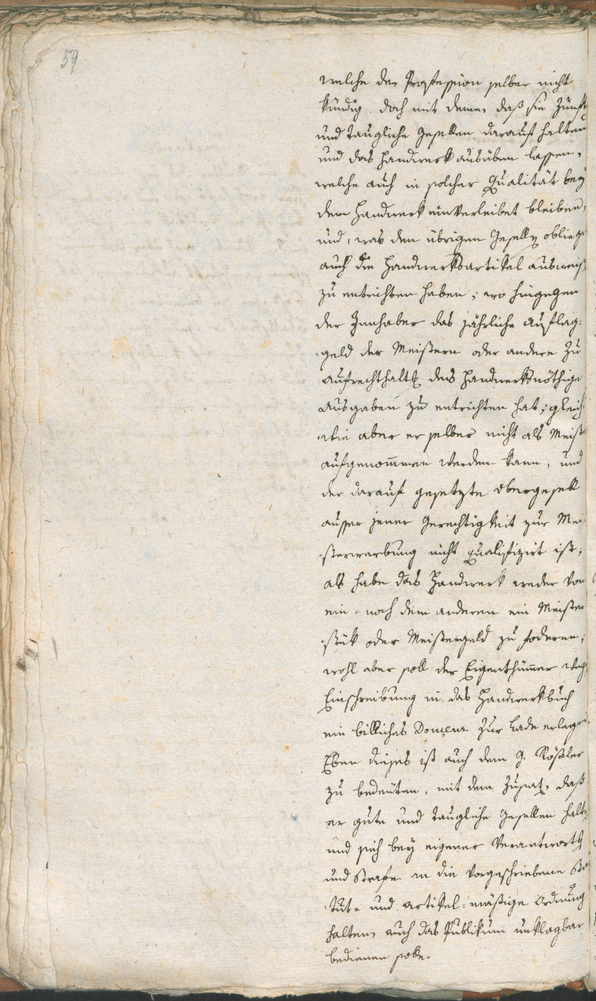 59
welche der Profession selber nicht
kündig doch mit deme, daß sie Zünft
und taugliche Gesellen darauf halten
und das Handwerk ausüben lassen,
welche auch in solcher Qualität bey
dem Handwerk einverleibet bleiben,
und, was den übrigen Gesellen obliegt
auch die Handwerksartikel ausweisen
zu entrichten haben; wo hingegen
der Innhaber das jährliche Auflag-
geld der Meistern oder andere zu
aufrechthaltung des Handwerks nöthige
Ausgaben zu entrichten hat; gleich-
wie aber er selber nicht als Meister
aufgenommen werden kann, und
der darauf gesetzte Obergesell
ausser jener Gerechtigkeit zur Mei-
sterwerbung nicht qualifizirt ist;
als habe das Handwerk weder von
ein- noch dem anderen ein Meister-
stük oder Meistergeld zu foderen;
wohl aber soll der Eigenthümer
Einschreibung in das Handwerkbuch
ein billiches zur Lade erlegen
Eben dieses ist auch dem J. Rößler
zu bedeuten, mit dem Zusatz, daß
er gute und taugliche Gesellen halte
und sich bey eigener Verantwortung
und Strafe an die vorgeschriebene Sta-
tut- und artikel-mäßige Ordnung
halten, auch das Publikum unklagbar
bedienen solle.